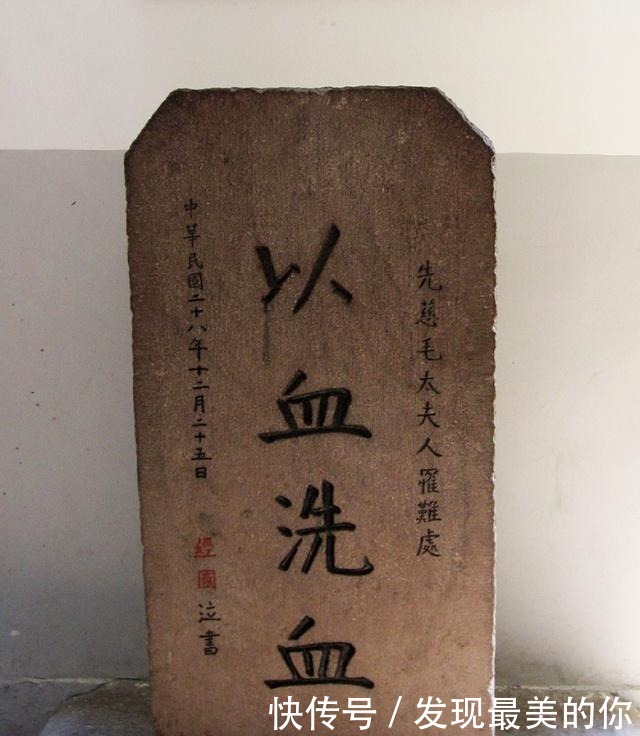 先慈毛太夫人罹難處
以血洗血
中華民國二十八年十二月二十五日
經國泣書
快传号/发现最美的你